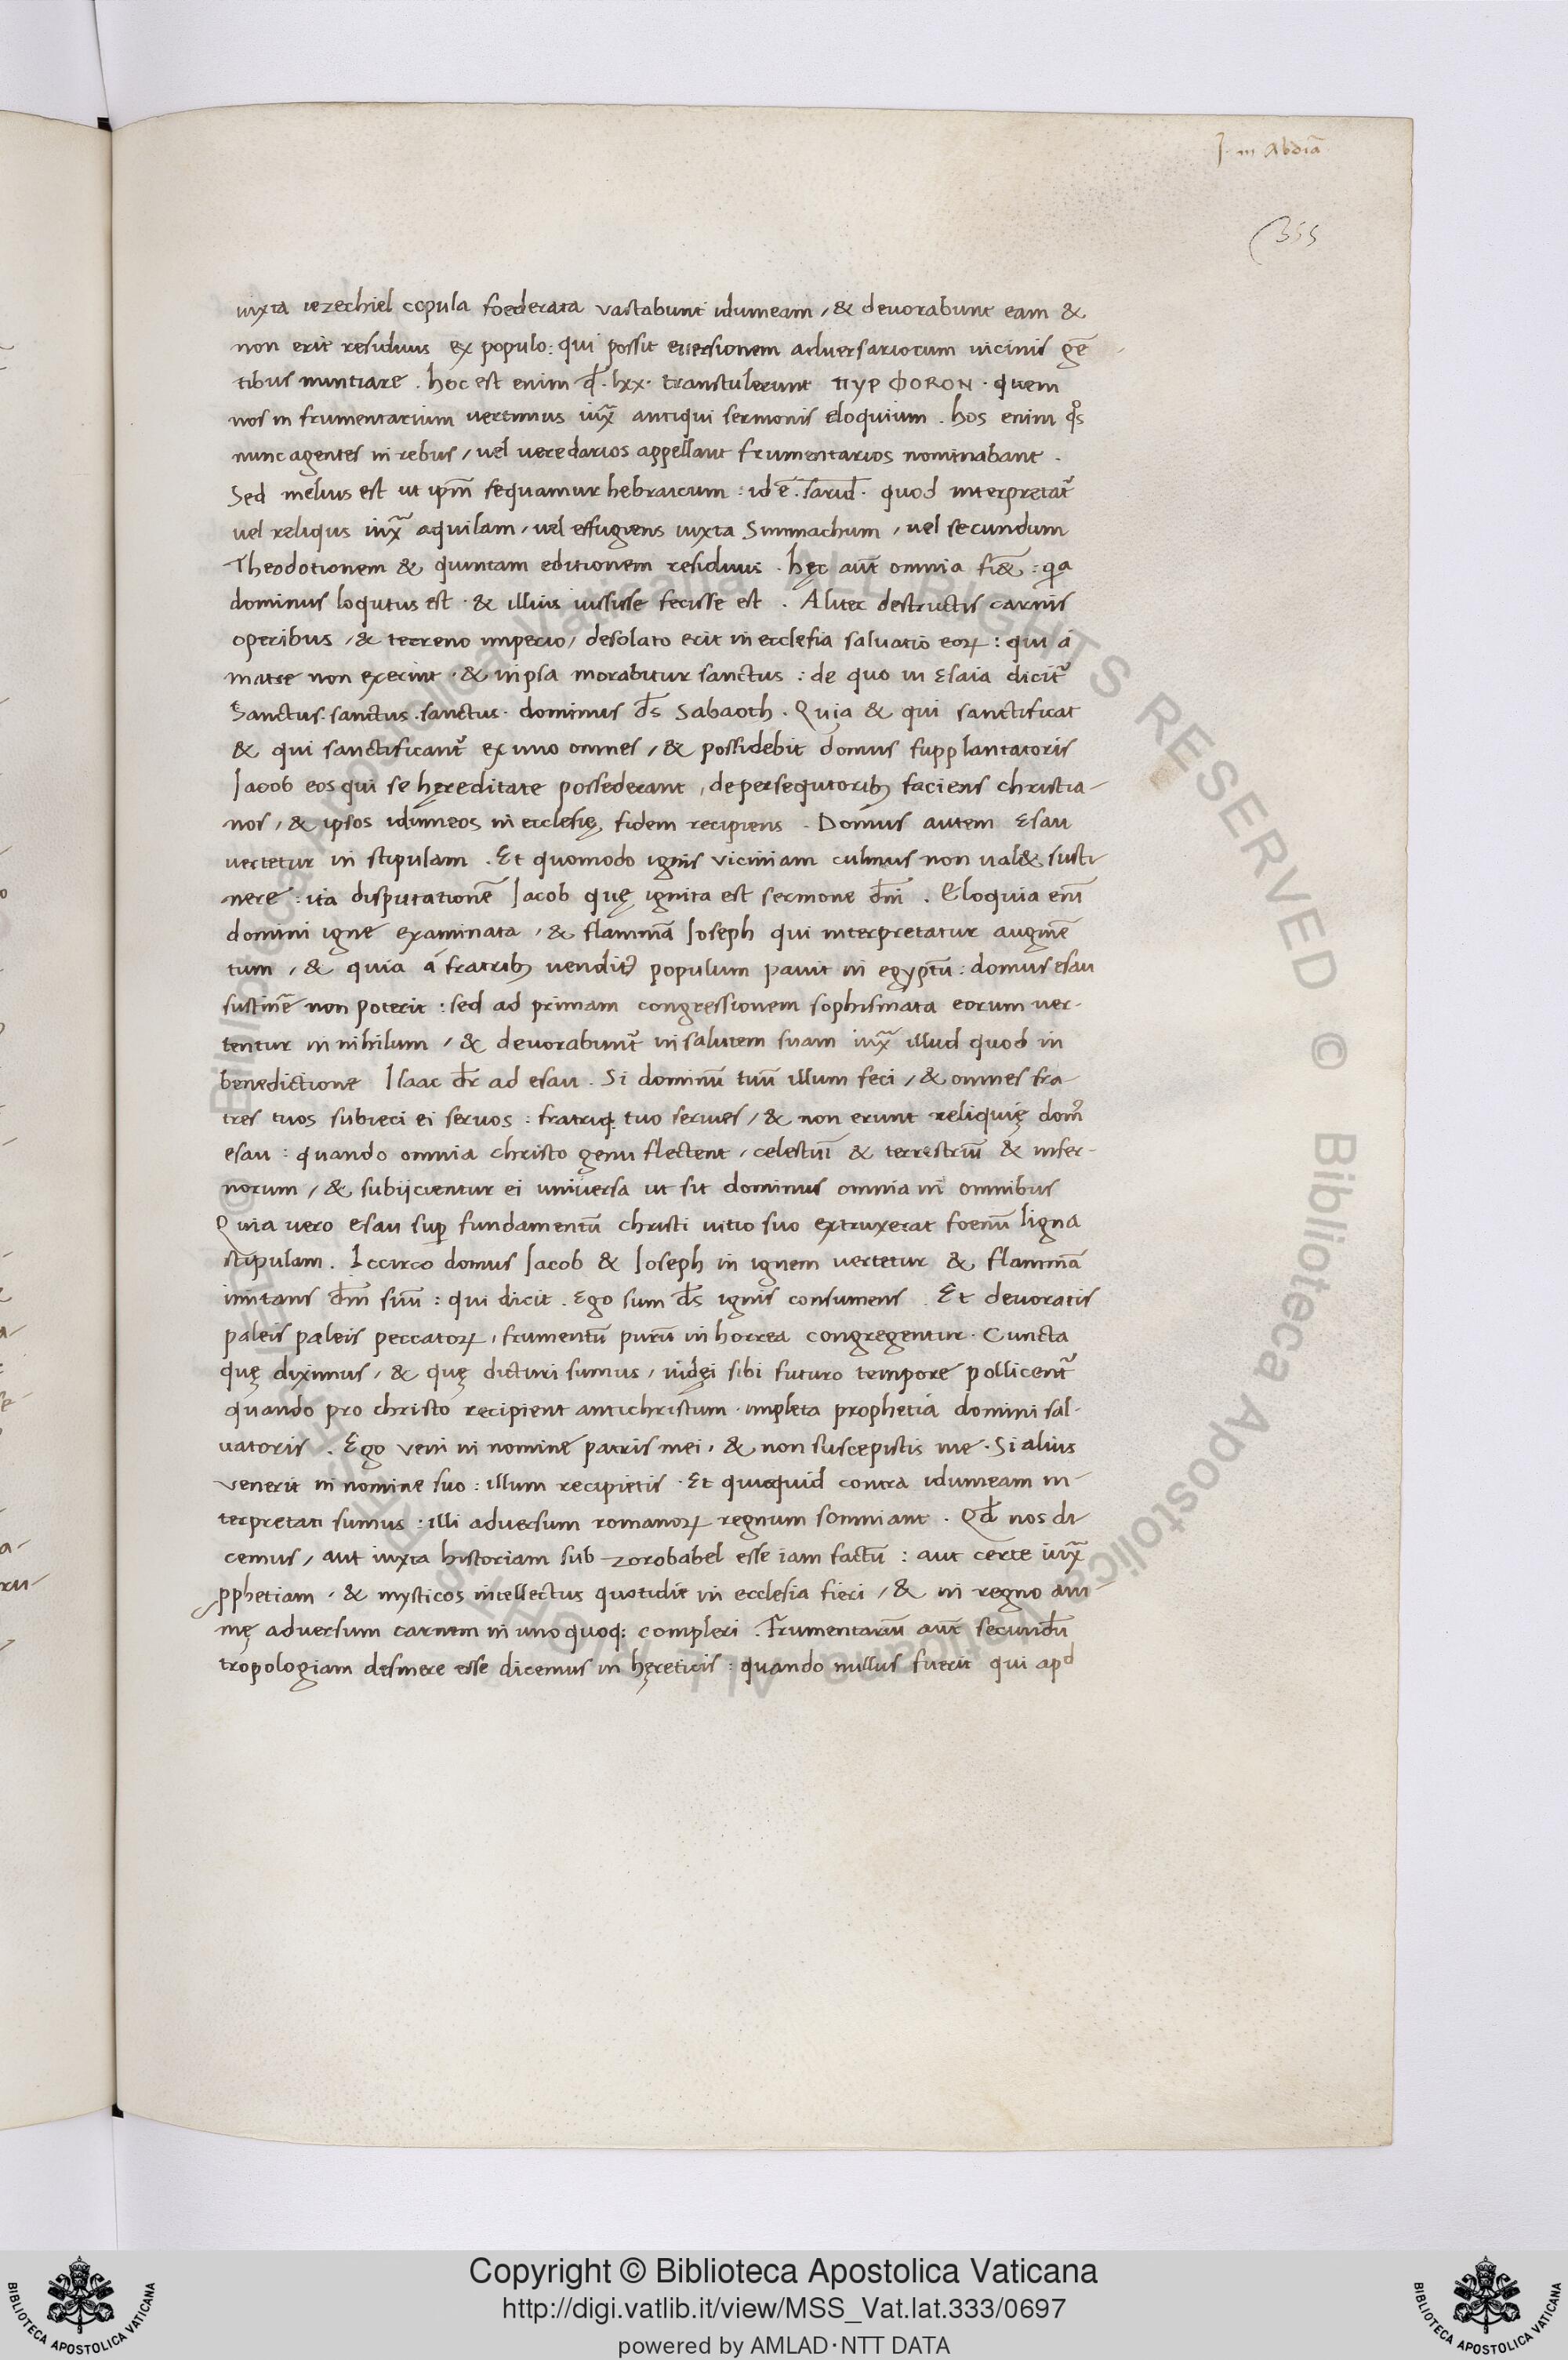 J. in Abdiā
355
iuxta iezechiel copula foederata vastabunt idumeam, & deuorabunt eam &
non erit residuus ex populo: qui possit euersionem aduersariorum uicinis gē
tibus nuntiare. hoc est enim qđ. lxx. transtulerunt ΠΥΡ ΦΟRON. quem
nos in frumentarium uertimus iux̄ antiqui sermonis eloquium. hos enim qͦs
nunc agentes in rebus, uel ueredarios appellant frumentarios nominabant.
Sed melius est ut ipm̄ sequamur hebraicum: id ē. sarid. quod interpretat᷑
uel reliqus iux̄ aquilam, uel effugiens iuxta Simmachum, uel secundum
Theodotionem & quintam editionem residuus. hęc aut̄ omnia fi&: qa
dominus loqutus est. & illius iussisse fecisse est. Aliter destructis carnis
operibus, & terreno imperio, desolato erit in ecclesia saluatio eoꝝ: qui á
matre non exerint. & in ipsa morabitur sanctus: de quo in Esaia dicit᷑
Sanctus. sanctus. sanctus. dominus d̄s Sabaoth. Quia & qui sanctificat
& qui sanctificant᷑ ex uno omnes, & possidebit domus supplantatoris
Jacob eos qui se hęreditate possederant, de persequtorib; faciens christia-
nos, & ipsos idumeos in ecclesię fidem recipiens. Domus autem Esau
uertetur in stipulam. Et quomodo ignis viciniam culmus non ual& susti-
nere: ita disputationē Jacob quę ignita est sermone dn̄i. Eloquia eni̅
domini igne examinata, & flammā Joseph qui interpretatur augmē
tum, & quia á fratrib; uenditꝰ populum pauit in egyptū: domus esau
sustinē non poterit: sed ad primam congressionem sophismata eorum uer-
tentur in nihilum, & deuorabunt᷑ in salutem suam iux̄ illud quod in
benedictione Isaac dr̄ ad esau. Si dominū tuū illum feci, & omnes fra-
tres tuos subieci ei seruos: fratriq. tuo seruies, & non erunt reliquię domꝰ
esau: quando omnia christo genu flectent, celestiū & terrestriū & infer-
norum, & subijcientur ei uniuersa ut sit dominus omnia in omnibus
Quia uero esau sup̱ fundamentū christi uitio suo extruxerat foenū ligna
stipulam. Iccirco domus Jacob & Joseph in ignem uertetur & flammā
imitans dn̄m suū: qui dicit. Ego sum d̄s ignis consumens. Et deuoratis
paleis paleis peccatoꝝ, frumentū purū in horrea congregentur. Cuncta
quę diximus, & quę dicturi sumus, iudęi sibi futuro tempore pollicent᷑
quando pro christo recipient antichristum. impleta prophetiá domini sal-
uatoris. Ego veni in nomine patris mei, & non suscepistis me. Si alius
venerit in nomine suo: illum recipietis. Et quicquid contra idumeam in-
terpretati sumus: illi aduersum romanoꝝ regnum somniant. Qđ nos di-
cemus, aut iuxta historiam sub zorobabel esse iam factū: aut certe iux̄
ꝓphetiam, & mysticos intellectus quotidie in ecclesia fieri, & in regno ani-
mę aduersum carnem in uno quoq: compleri. Frumentariū aut̄ secundū
tropologiam desinere esse dicemus in hęreticis: quando nullus fuerit qui apᵈ
Copyright © Biblioteca Apostolica Vaticana
http://digi.vatlib.it/view/MSS_Vat.lat.333/0697
powered by AMLAD·NTT DATA
BIBLIOTECA APOSTOLICA VATICANA
BIBLIOTECA APOSTOLICA VATICANA